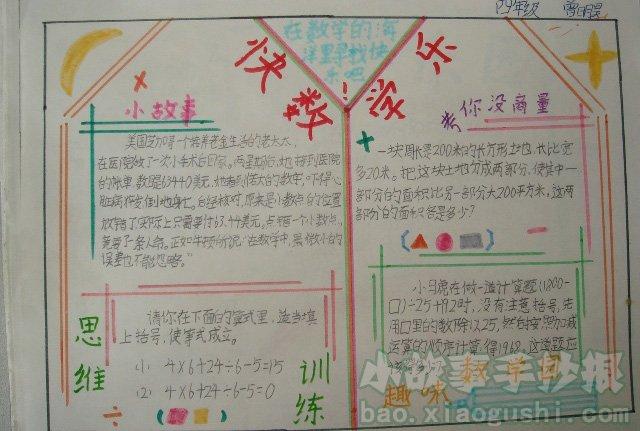 四年级
在数学的海
洋里寻找快
乐吧!
快数学乐
小故事
美国芝加哥一个靠养老金生活的老太太,
在医院做了一次小手术后回家。两星期后,她接到医院
的账单,数是63440美元,她看到偌大的数字,吓得心
脏病猝发倒地身亡。后经核对,原来是小数点的位置
放错了,实际上只需要付63.44美元。点错一个小数点,
竟要了一条人命。正如牛顿所说:“在数学中,最微小的
误差也不能忽略。”
考你没商量
一块周长是200米的长方形土地,长比宽
多20米。把这块土地分成两部分,使其中一
部分的面积比另一部分大200平方米,这两
部分的面积各是多少?
思维
训练
请你在下面的算式里,适当填
上括号,使等式成立。
(1) 4×6+24÷6-5=15
(2) 4×6+24÷6-5=0
小月亮在做一道计算题(1800-
口)÷25+192时,没有注意括号,先
用口里的数除以25,然后按加减
运算的顺序计算,得1968。这道题应
趣味数学园
小故事手抄报
bao.xiaogushi.com